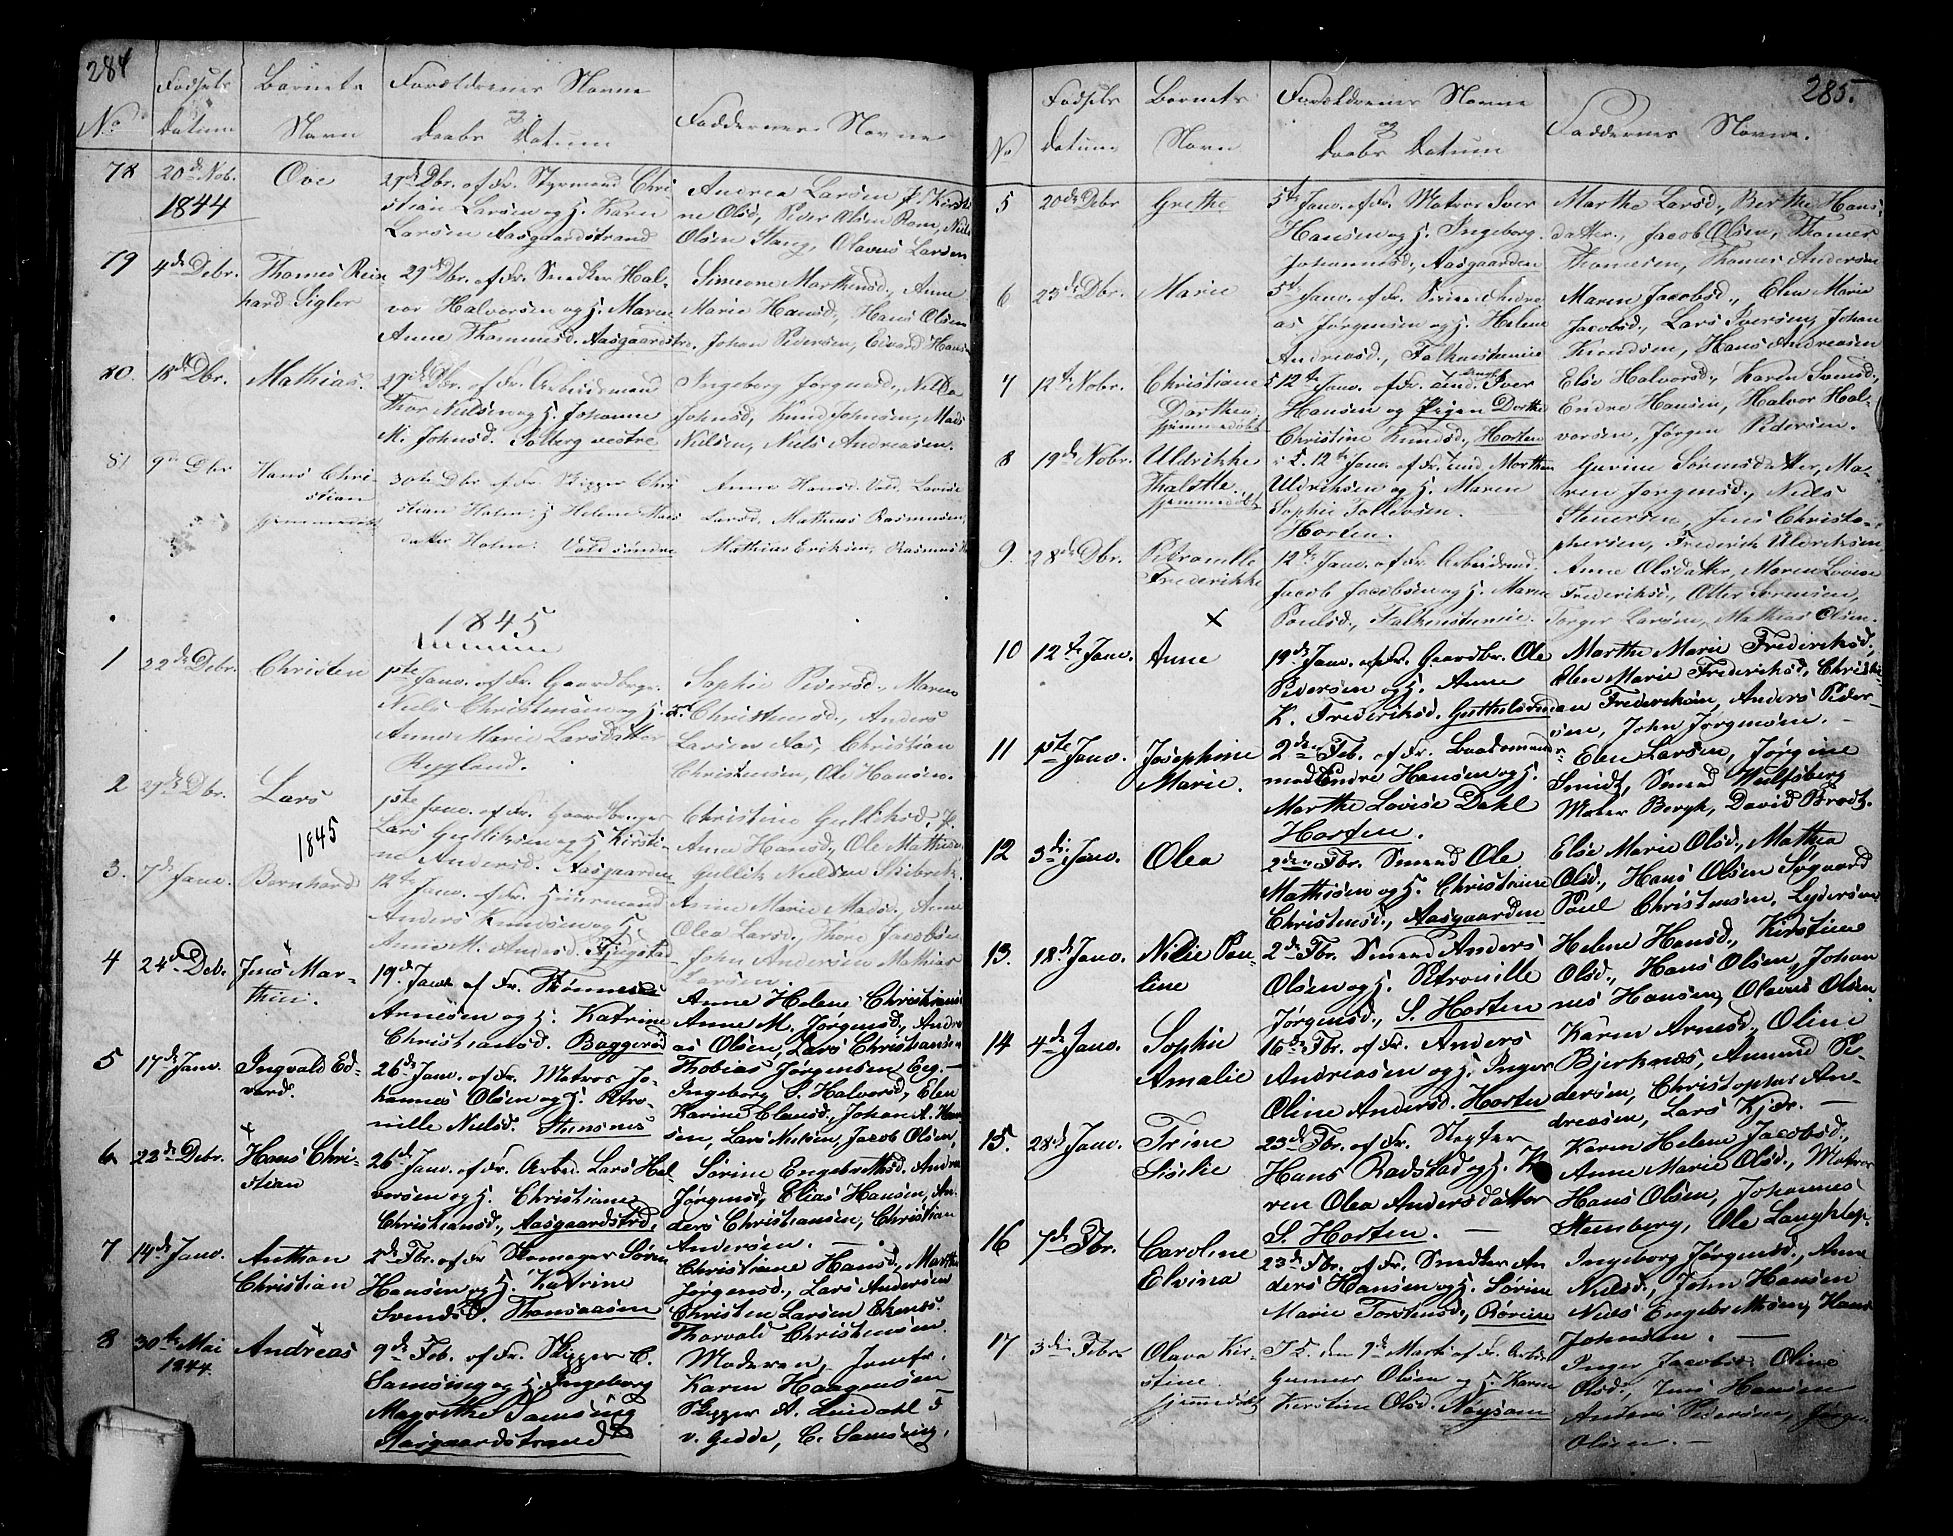 284
No
Fødsels
Datum
Barnets
Navn
Forældrenes Navne
og
Daabs Datum
Faddernes Navne
78
20de Nob.
1844
Ove
29de Dbr. af Fr. Styrmand Chri-
stian Larsen og H. Karen
Larsen Aasgaardstrand
Andrea Larsen J. Kirsti-
ne Olsd, Peder Olsen Rom, Niels
Olsen Stang, Olavus Larsen
79
4de Debr.
Thomas Rein
hard Sigler
29de Dbr. af Fr. Snedker Hal-
vor Halvorsen og H. Maren
Anne Thommesd. Aasgaardstr.
Simeone Marthinsd., Anne
Marie Hansd., Hans Olsen
Johan Pedersen, Edvard Hans
80.
18de Dbr.
Mathias.
29de Dbr. af Fr. Arbeidsmand
Thor Nielsen og H. Johanne
M. Johnsd. Solberg vestre
Ingeborg Jørgensd.,
Johnsd, Knud Johnsen, Mads
Nielsen, Niels Andreasen.
81
9de Dbr
Hans Chri
stian
hjemmedøbt
30te Dbr af Fr. Skipper Chri
stian Holm, H Helene Mari
datter Holm. Vold søndre
Anne Hansd. Vold, Lovise
Larsd, Mathias Rasmussen,
Mathias Eriksen, Rasmus
1845
1
22de Debr.
Christen
1ste Janv. af Fr. Gaardbrgr.
Niels Christensen og H.
Anne Marie Larsdatter
Rygland.
Sophie Pedersd., Maren
Christensd., Anders
Larsen Aas, Christian
Christensen, Ole Hansen.
2
29de Dbr.
Lars
1ste Janv. af Fr. Gaardbruger
Lars Gulliksen og H. Kirsti-
ne Andersd. Aasgaarden
Christine Gulliksd, J.
Anne Hansd., Ole Mathisen
Gullik Nielsen Skibrek.
1845
3.
7de Janv.
Bernhard
12te Janv. af Fr. Huusmand
Anders Knudsen og H.
Anne M. Andersd. Fjugstad
Anne Marie Madsd., Anne
Olea Larsd., Thore Jacobsen
John Andersen Mathias
Larsen
4
24de Debr.
Jens Mar-
thin.
19de Janv. af Fr. Thommes
Arnesen og H. Katrine
Christiansd. Baggerød
Anne Helene Christiansd
Anne M. Jørgensd., Andre
as Olsen, Lars Christiansen
Thobias Jørgensen Eeg.
5
17de Janv.
Ingvald Ed-
vard.
26de Janv. af Fr. Matros Jo-
hannes Olsen og H. Petro-
nille Nielsd. Steensnes
Ingeborg S. Halvorsd, Elen
Karine Clausd., Johan A. Han
sen, Lars Nielsen, Jacob Olsen,
6
22de Debr.
Hans Chri-
stian
26de Janv. af Fr. Arbed. Lars Hal-
vorsen og H. Christiane
Christiansd., Aasgaardstrd.
Sørine Engebrethsd, Andrea
Jørgensd, Elias Hansen, An-
ders Christiansen, Christian
Andersen.
7
14de Janv.
Anthon
Christian
2de Fbr. af Fr Skomager Søren
Hansen og H. Katrine
Svendsd. Thonsaasen
Christiane Hansd., Marthe
Jørgensd., Lars Andersen
Christen Larsen Ekenes.
Thorvald Christensen
8
30te Mai
1844.
Andreas
9de Feb. af Fr. Skipper C.
Samsing og H. Ingeborg
Magrethe Samsing
Aasgaardstrand
Moderen, Jomfr.
Karen Haagensen
Skipper A. Lindahl
v. Gedde, C. Samsing.
285.
No
Fødsels
Datum
Barnets
Navn
Forældrenes Navne
og
Daabs Datum
Faddernes Navne.
5
20de Debr
Grethe
5te Janv. af Fr. Matros Iver
Hansen og H. Ingeborg
Johannesd., Aasgaarden
Marthe Larsd., Berthe Hans-
datter., Jacob Olsen, Thomas
Thomesen, Thomas Andersen
6
23de Dbr.
Marie
5te Janv. af Fr. Andre
as Jørgensen og H. Helene
Andreasd., Falkenstenie
Maren Jacobsd., Elen Marie
Jacobsd., Lars Iversen, Johan
Knudsen, Hans Andreasen
7
12te Nobr.
Christiane
Dorthea,
hjemmedøbt
12te Janv. af Fr. Iver
Hansen og Pigen Dorthe
Christine Knudsd., Horten
Else Halvorsd., Karen Svensd.,
Endre Hansen, Halvor Hal-
vorsen, Jørgen Pedersen.
8
19de Nobr.
Uldrikke
hjemmedøbt
i K. 12te Janv. af Fr. Morthen
Uldriksen og H. Maren
Sophie Tollevsen.
Horten.
Gurine Sørensdatter, Ma-
ren Jørgensd., Niels
Stenersen, Jens Christo-
phersen, Frederik Uldriksen
9.
28de Dbr.
Petronille
Frederikke
12te Janv. af Fr. Arbeidsmd.
Jacob Jacobsen og H. Maren
Poulsd., Falkenstenie.
Anne Olsdatter, Maren Lovise
Frederiksd, Otter Sørensen,
Torger Larsen, Mathias Olsen.
10
12te Janv.
Anne
19de Janv. af Fr. Gaardbr. Ole
Pedersen og H. Anne
K. Frederiksd. Guttulsrød
Marthe Marie Frederiksd.,
Elen Marie Frederiksd, Christi-
an Frederiksen, Anders Peder-
sen, John Jørgensen.
11
1ste Janv.
Josephine
Marie.
2den Feb. af Fr. Baadsmands-
mad Endre Hansen og H.
Marthe Lovise Dahl
Horten.
Elen Larsen, Jørgine
Smidt, Smed Wulfsberg
Maler Bergh, David Brodtz.
12
3die Janv.
Olea
2den Fbr. Smed Ole
Mathisen og H. Christiane
Christensd., Aasgaarden
Else Marie Olsd., Mathea
Olsd., Hans Olsen Søgaard
Poul Christensen, Lydersen
13.
18de Janv.
Nilie Pau-
line
2de Fbr. Smed Anders
Olsen og H. Petronille
Jørgensd., S. Horten
Helene Hansd., Kirstine
Olsd., Hans Olsen, Johan
nes Hansen, Olavus Olsen
14
4de Janv.
Sophie
Amalie
16de Fbr. af Fr. Anders
Andreasen og H. Inger
Oline Andersd. Horten
Karen Arnesd., Oline
Bjerknes, Amund Pe-
dersen, Christopher An-
dreasen, Lars Kjær.
15.
28de Janv.
Trine
Sislie
23de Fbr. af Fr. Slagter
Hans Radstad og H. Ka
ren Olea Andersdatter
S. Horten.
Karen Helene Jacobsd.,
Anne Marie Olsd., Matros
Hans Olsen, Johannes
Steensberg, Ole Langklep.
16
7de Fbr.
Caroline
Elvina
23de Fbr. af Fr. Snedker An-
ders Hansen og H. Sørine
Marie Torstensd., Rørvie
Ingeborg Jørgensd., Anne
Nielsd., John Hansen
Niels Engebrethsen, Hans
Johnsen.
17
3die Febr
Olava Kir-
stine.
hjemmedøbt
I K. den 9de Marts af Fr. Arbei
Gunner Olsen og H. Karen
Kirstine Olsd. Nøysom
Inger Jacobsd. Oline
Olsd., Jens Hansen
Anders Pedersen, Jørgen
Olsen.